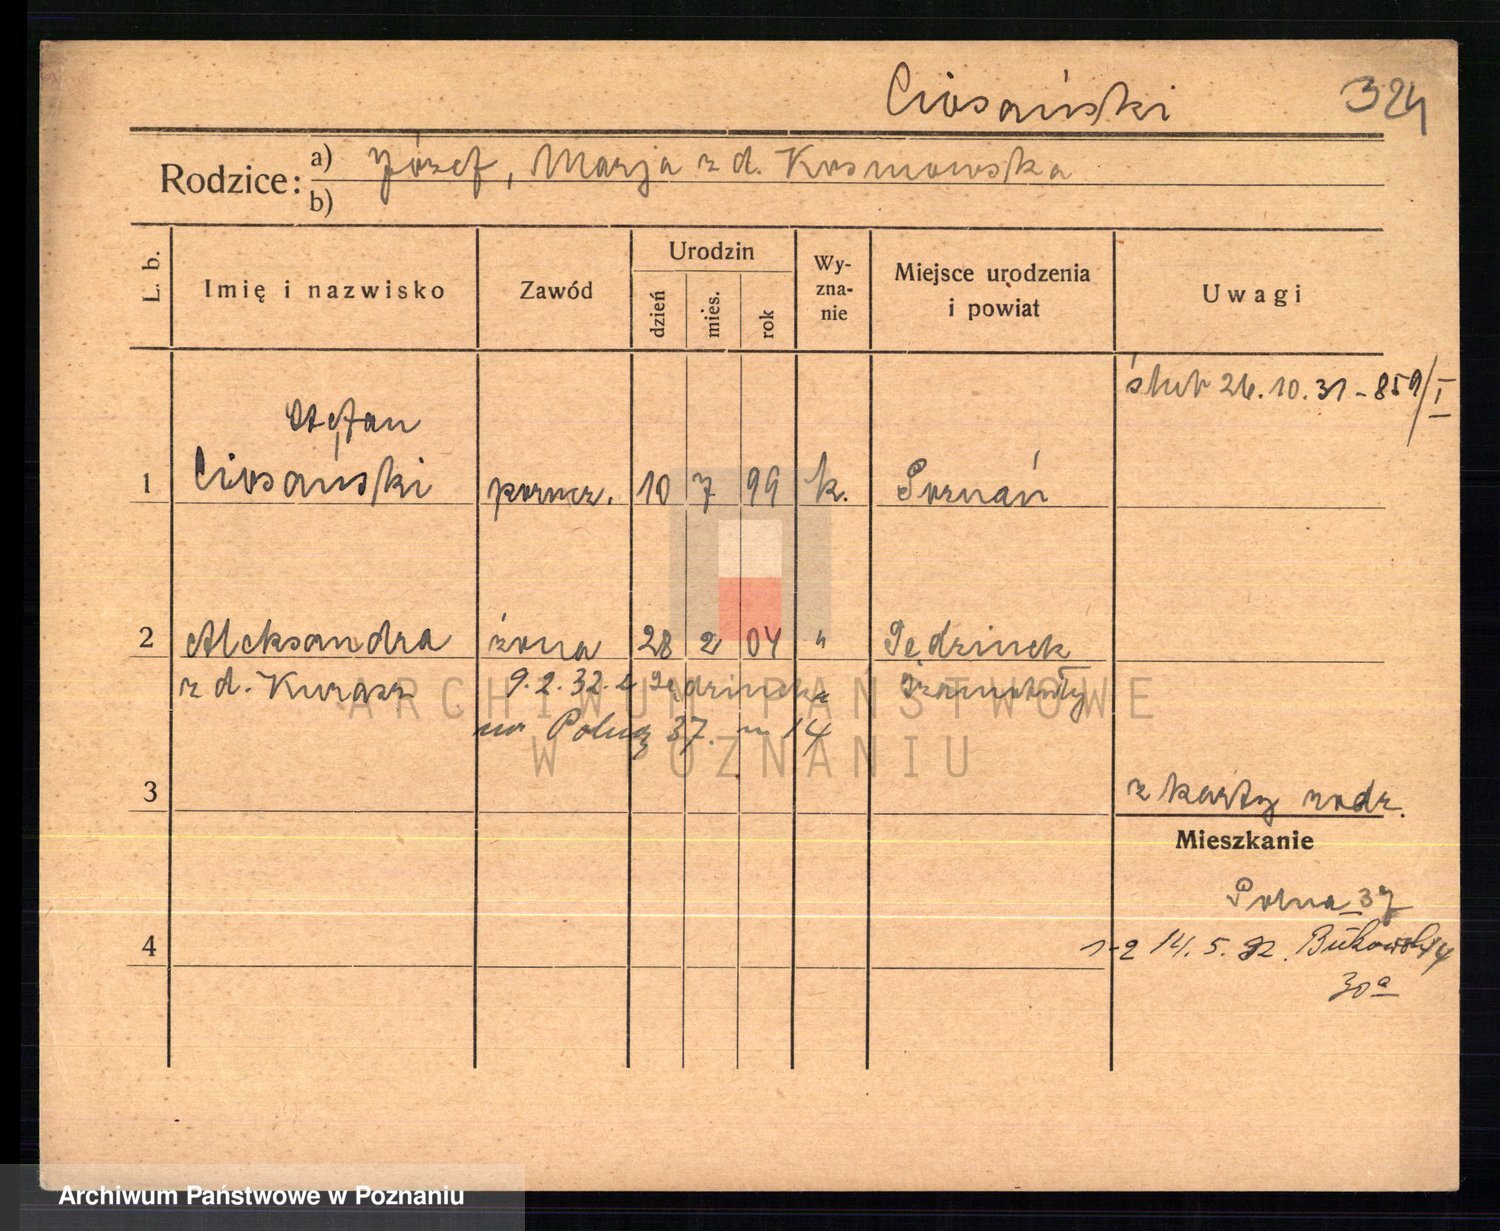 Ciosański 324
Rodzice: a) Józef, Marja z d. Kosmowska
b)
L. b. Imię i nazwisko Zawód Urodzin dzień mies. rok Wyznanie Miejsce urodzenia i powiat Uwagi
ślub 26.10.31 - 859/I
Stefan
1 Ciosański porucz. 10 7 99 k. Poznań
2 Aleksandra żona 28 2 04 " Pędzinek
z d. Kurasz 9.2.32. z Pędzinka Szamotuły
na Polną 37. m 14
3 z karty rodz.
Mieszkanie
Polna 37
4 1-2 14.5.32. Bukowska
30a
ARCHIWUM PAŃSTWOWE
W POZNANIU
Archiwum Państwowe w Poznaniu